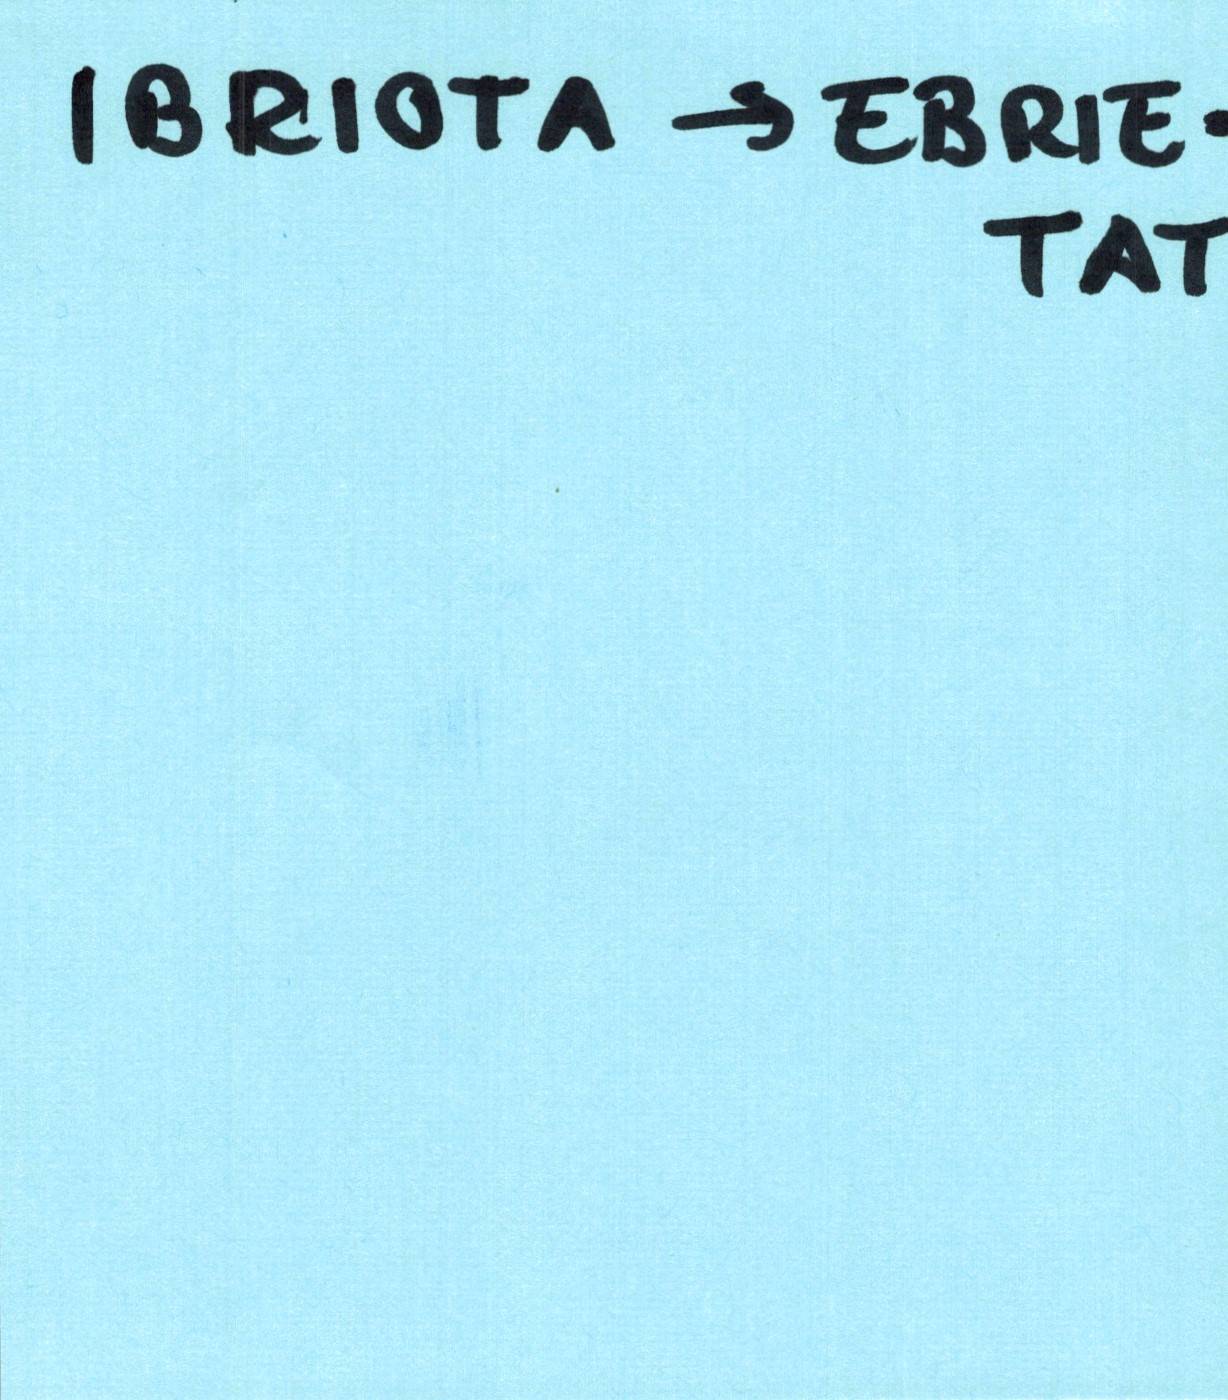 IBRIOTA → EBRIE-
TAT